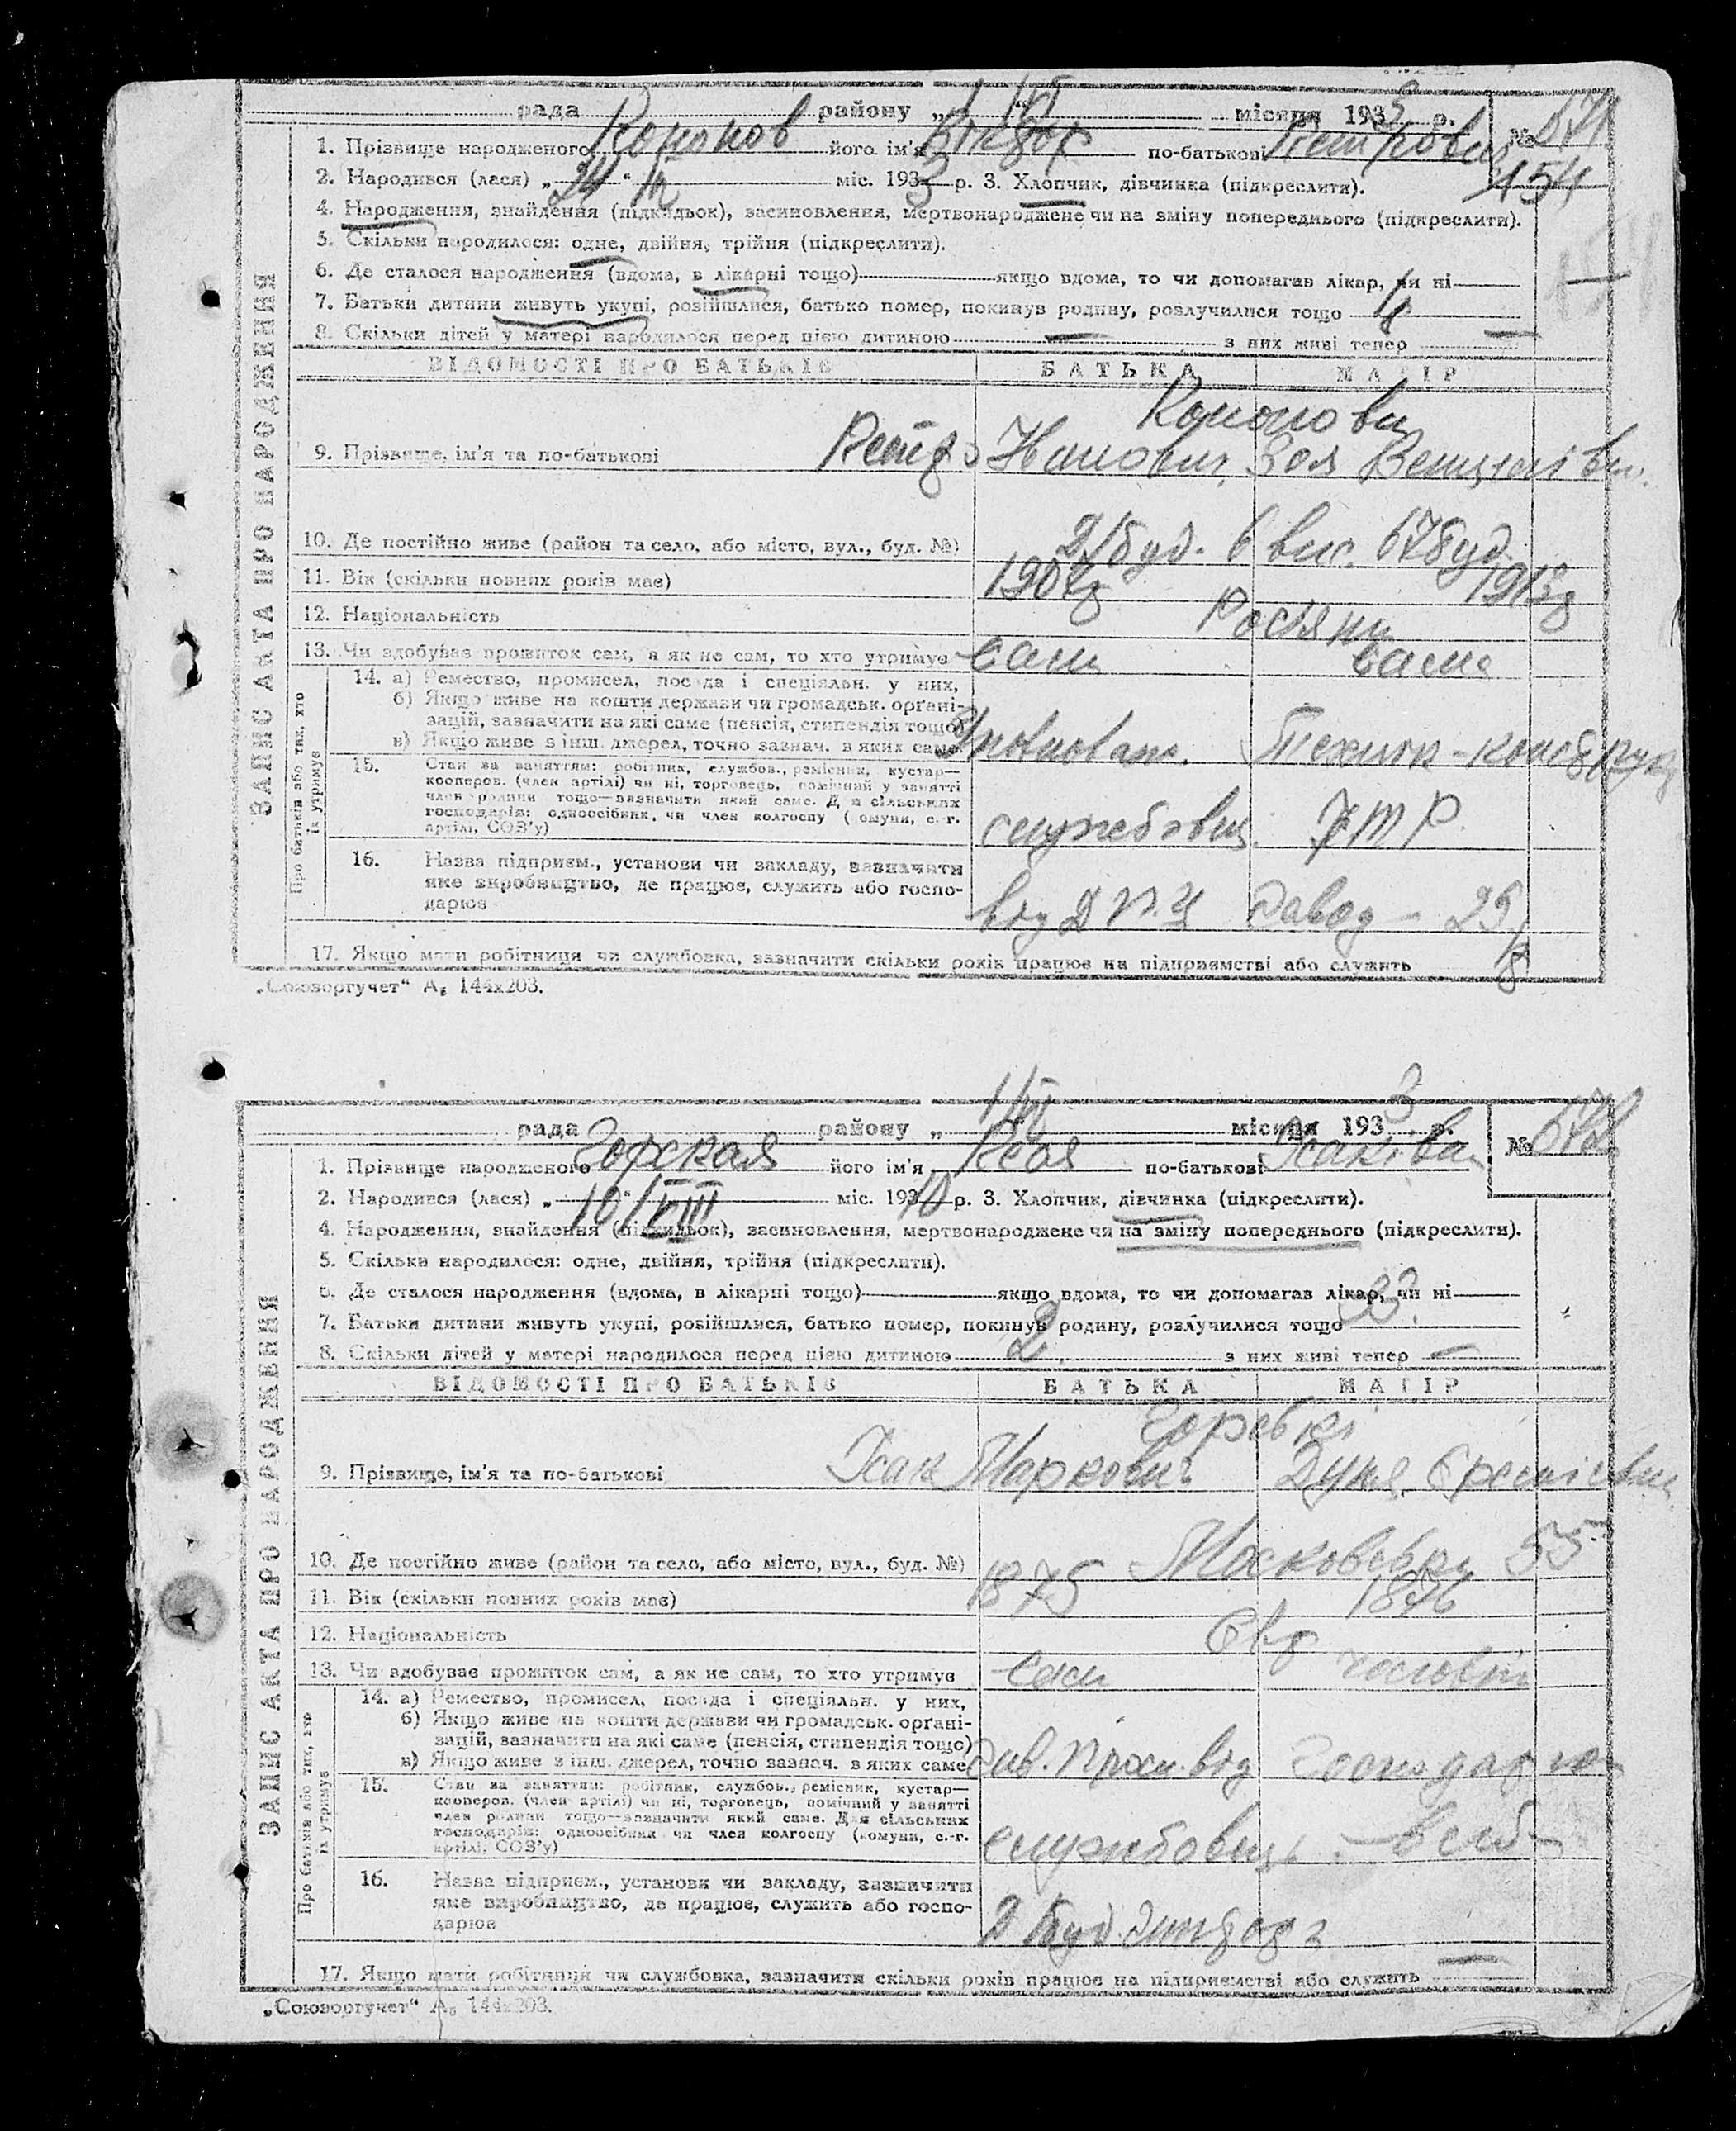 рада району „ 1/VI “ місяця 1933 р.
№ 671
1. Прізвище народженого Кононов його ім'я Віктор по-батькові Петрович
154
2. Народився (лася) „24“ міс. 1933 р. 3. Хлопчик, дівчинка (підкреслити).
4. Народження, знайдення (підкидьок), засиновлення, мертвонароджене чи на зміну попереднього (підкреслити).
5. Скільки народилося: одне, двійня, трійня (підкреслити).
6. Де сталося народження (вдома, в лікарні тощо) якщо вдома, то чи допомагав лікар, чи ні
7. Батьки дитини живуть укупі, розійшлися, батько помер, покинув родину, розлучилися тощо
8. Скільки дітей у матері народилося перед цією дитиною — з них живі тепер —
ВІДОМОСТІ ПРО БАТЬКІВ БАТЬКА МАТІР
Кононови
9. Прізвище, ім'я та по-батькові Петро Іванович Зоя
10. Де постійно живе (район та село, або місто, вул., буд. №) буд. 6 вис. 67 буд.
11. Вік (скільки повних років має) 1904 1913
12. Національність Росіяни
13. Чи здобуває прожиток сам, а як не сам, то хто утримує сам сама
14. а) Ремество, промисел, посада і спеціяльн. у них,
б) Якщо живе на кошти держави чи громадськ. орґані-
зацій, зазначити на які саме (пенсія, стипендія тощо)
в) Якщо живе з інш. джерел, точно зазнач. в яких саме Технік-конструк
15. Стан за заняттям: робітник, службов., ремісник, кустар—
кооперов. (член артілі) чи ні, торговець, помічний у занятті
член родини тощо—зазначити який саме. Для сільських
господарів: одноосібник, чи член колгоспу (комуни, с.-г.
артілі, СОЗ'у) службовець ІТР
16. Назва підприєм., установи чи закладу, зазначити
яке виробництво, де працює, служить або госпо-
дарює завод - 29
17. Якщо мати робітниця чи службовка, зазначити скільки років працює на підприємстві або служить
ЗАПИС АКТА ПРО НАРОДЖЕННЯ
Про батьків або тих, хто їх утримує
„Союзоргучет“ А₅ 144х203.
рада району „ 1/VI “ місяця 1933 р.
№ 672
1. Прізвище народженого Горская його ім'я по-батькові Ісаківна
2. Народився (лася) „10“ VIII міс. 1910 р. 3. Хлопчик, дівчинка (підкреслити).
4. Народження, знайдення (підкидьок), засиновлення, мертвонароджене чи на зміну попереднього (підкреслити).
5. Скільки народилося: одне, двійня, трійня (підкреслити).
6. Де сталося народження (вдома, в лікарні тощо) якщо вдома, то чи допомагав лікар, чи ні
7. Батьки дитини живуть укупі, розійшлися, батько помер, покинув родину, розлучилися тощо
8. Скільки дітей у матері народилося перед цією дитиною 2 з них живі тепер —
ВІДОМОСТІ ПРО БАТЬКІВ БАТЬКА МАТІР
Горські
9. Прізвище, ім'я та по-батькові Ісак Маркович Дуня
10. Де постійно живе (район та село, або місто, вул., буд. №) Московська 55
11. Вік (скільки повних років має) 1875 1876
12. Національність Євр
13. Чи здобуває прожиток сам, а як не сам, то хто утримує сам чоловік
14. а) Ремество, промисел, посада і спеціяльн. у них,
б) Якщо живе на кошти держави чи громадськ. орґані-
зацій, зазначити на які саме (пенсія, стипендія тощо)
в) Якщо живе з інш. джерел, точно зазнач. в яких саме Зав. від господарює
15. Стан за заняттям: робітник, службов., ремісник, кустар—
кооперов. (член артілі) чи ні, торговець, помічний у занятті
член родини тощо—зазначити який саме. Для сільських
господарів: одноосібник чи член колгоспу (комуни, с.-г.
артілі, СОЗ'у) службовець
16. Назва підприєм., установи чи закладу, зазначити
яке виробництво, де працює, служить або госпо-
дарює
17. Якщо мати робітниця чи службовка, зазначити скільки років працює на підприємстві або служить —
ЗАПИС АКТА ПРО НАРОДЖЕННЯ
Про батьків або тих, хто їх утримує
„Союзоргучет“ А₅ 144х203.